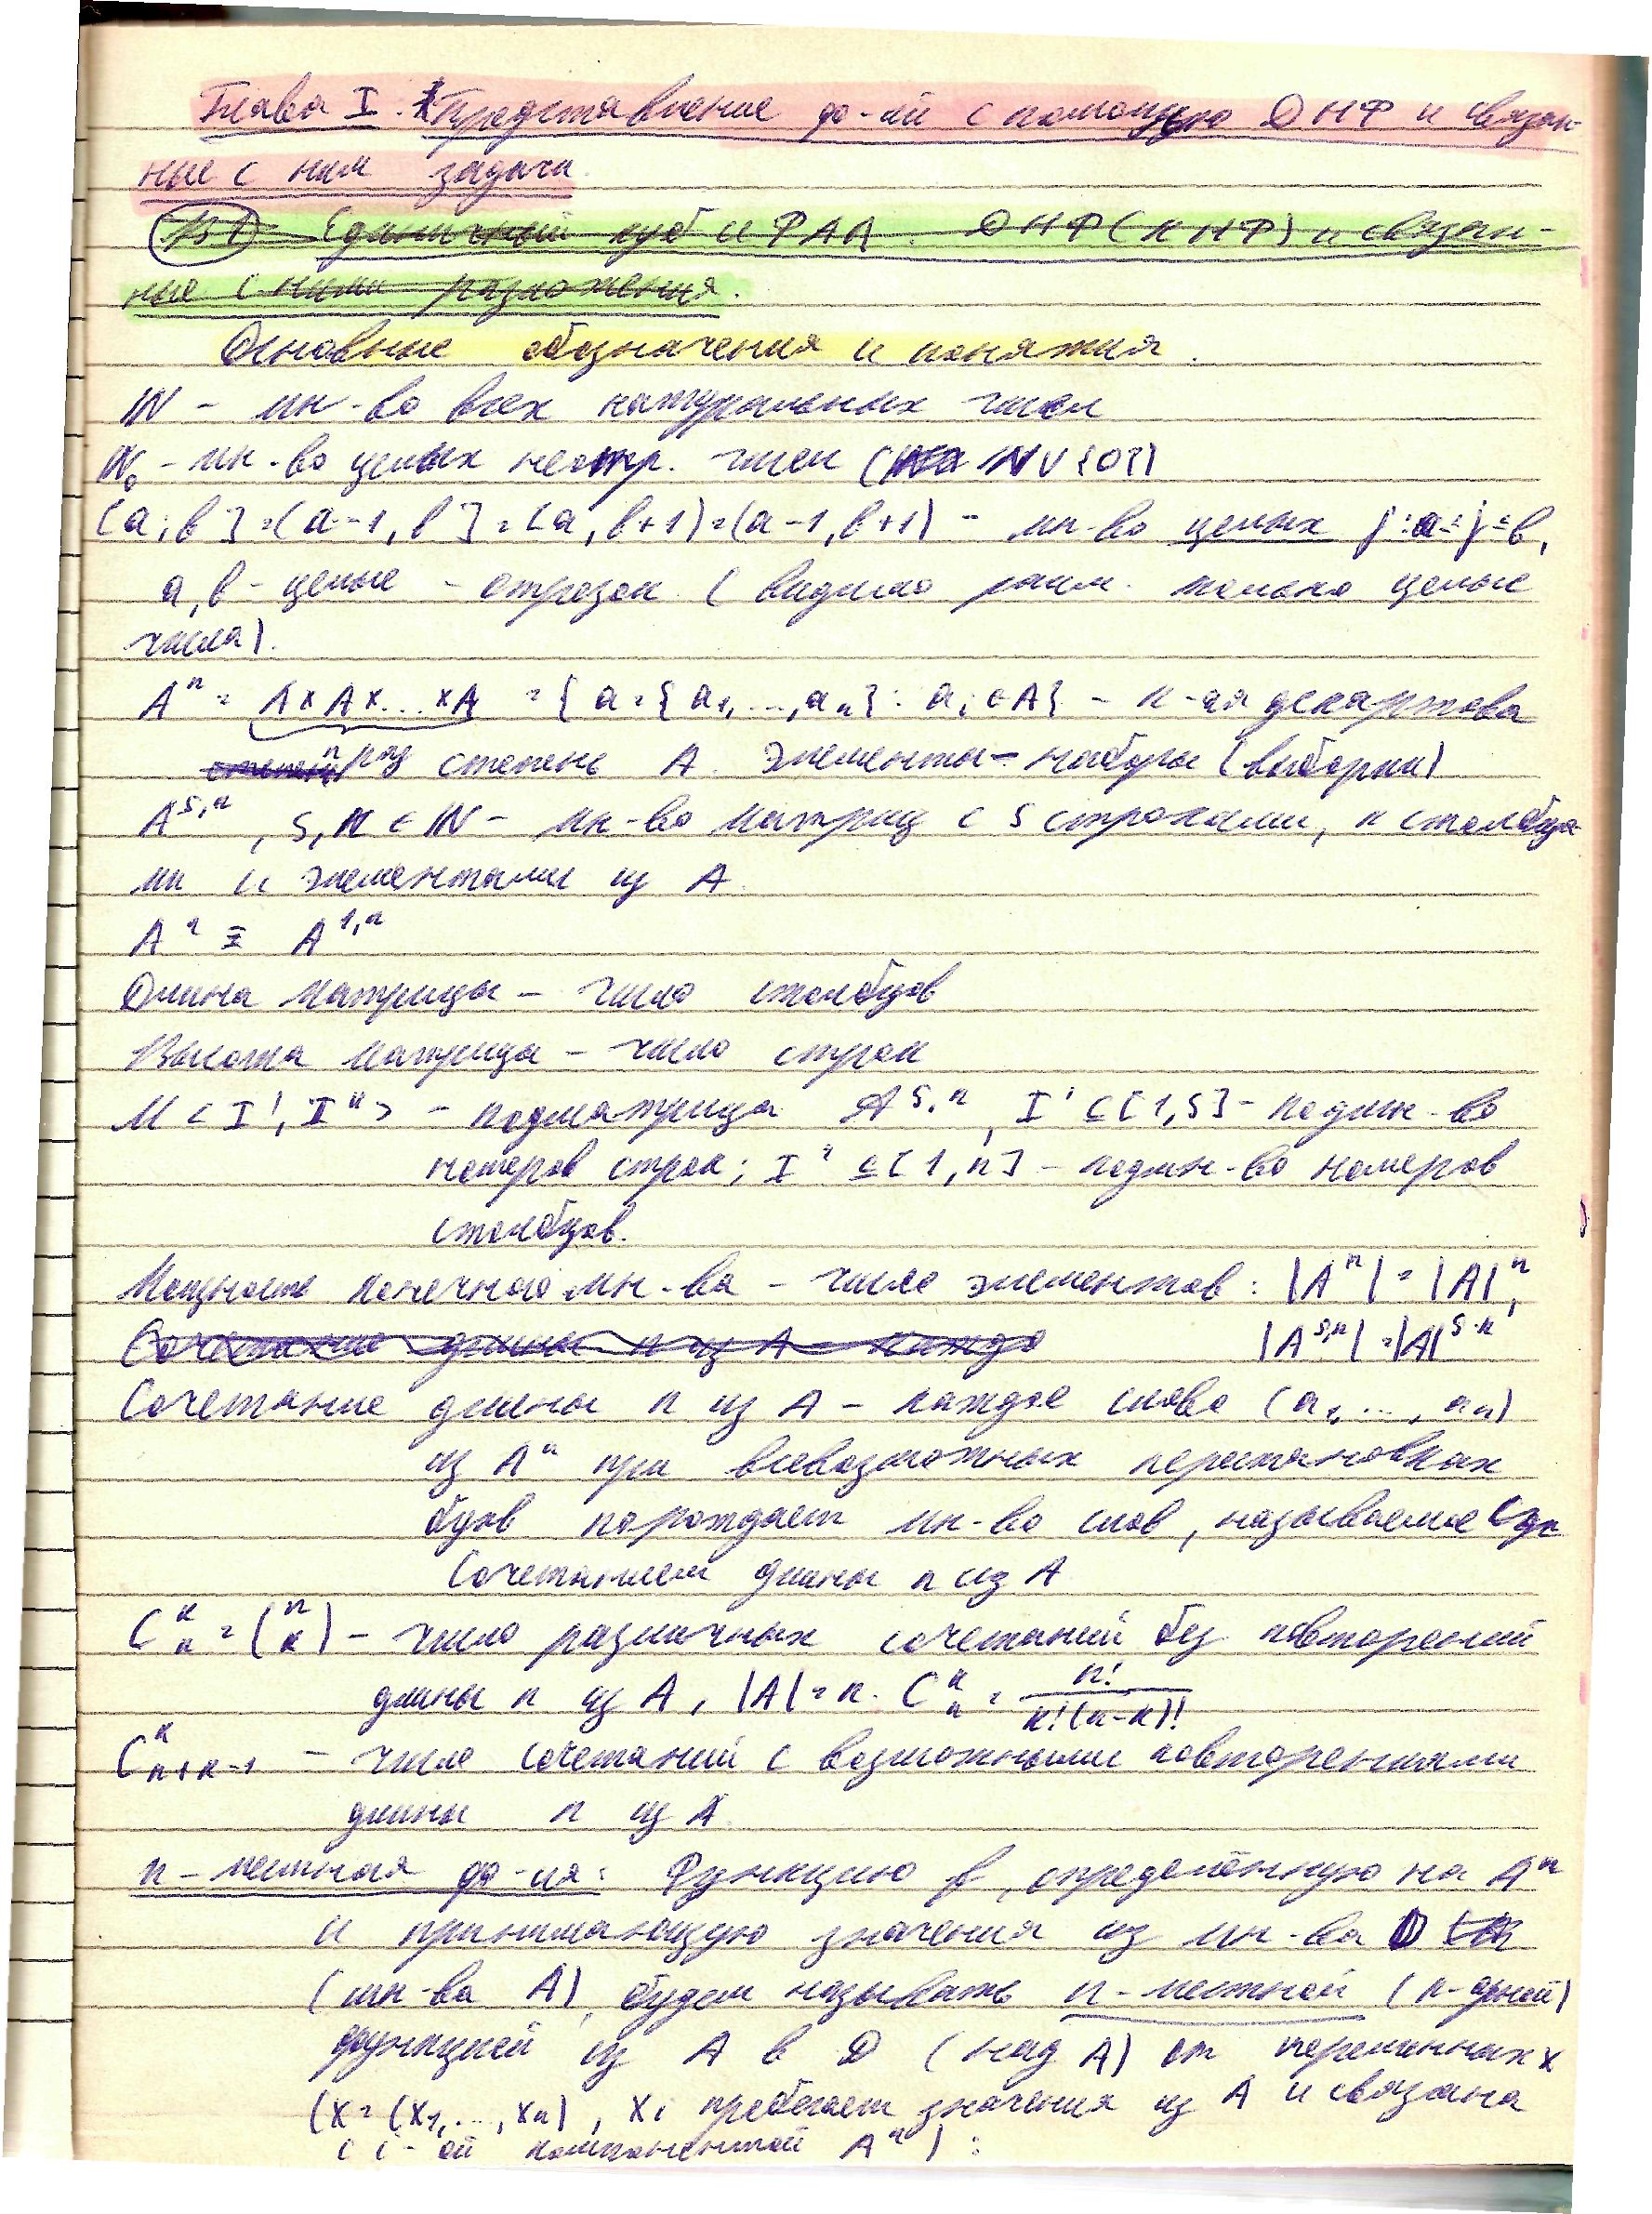 Глава I. Представление ф-ий с помощью ДНФ и связан-
ные с ним задачи.
№1) Единичный куб и ФАЛ. ДНФ (КНФ) и связан-
ные с ними разложения.
Основные обозначения и понятия.
ℕ – мн-во всех натуральных чисел
ℕ₀ – мн-во целых неотр. чисел (ℕ∪{0})
[a,b] = (a-1,b] = [a,b+1) = (a-1,b+1) – мн-во целых j: a≤j≤b,
a,b – целые – отрезок (видимо расм. только целые
числа).
Aⁿ = A×A×...×A = {a={a₁,...,aₙ}: aᵢ∈A} – n-ая декартова
n раз степень A. Элементы – наборы (выборки)
A^{s,n}, s,n ∈ ℕ – мн-во матриц с s строками, n столбца-
ми и элементами из A
Aⁿ ≡ A^{1,n}
Длина матрицы – число столбцов
Высота матрицы – число строк
M<I', I''> – подматрица A^{s,n}, I' ⊆ [1,s] – подмн-во
номеров строк; I'' ⊆ [1,n] – подмн-во номеров
столбцов.
Мощность конечного мн-ва – число элементов: |Aⁿ| = |A|ⁿ,
Сочетание длины n из A – каждо |A^{s,n}| = |A|^{s·n}
Сочетание длины n из A – каждое слово (a₁,...,aₙ)
из Aⁿ при всевозможных перестановках
букв порождает мн-во слов, называемое
сочетанием длины n из A
C_n^k = (n k) – число различных сочетаний без повторений
длины n из A, |A| = n. C_n^k = n!/(k!(n-k)!)
C_{n+k-1}^k – число сочетаний с возможными повторениями
длины n из A
n-местная ф-ия: Функцию f, определённую на Aⁿ
и принимающую значения из мн-ва D
(мн-ва A), будем называть n-местной (n-арной)
функцией из A в D (над A) от переменных x
(x=(x₁,...,xₙ), xᵢ пробегает значения из A и связана
с i-ой компонентой Aⁿ):